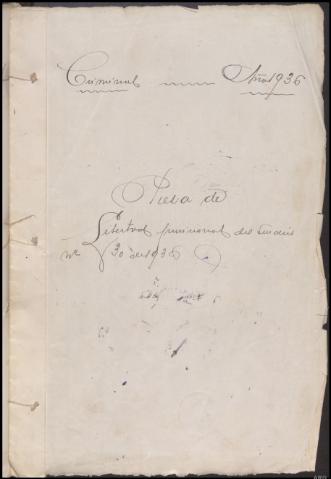 Criminal Año 1936
Pieza de
Libertad provisional del sumario
nº 30 de 1936